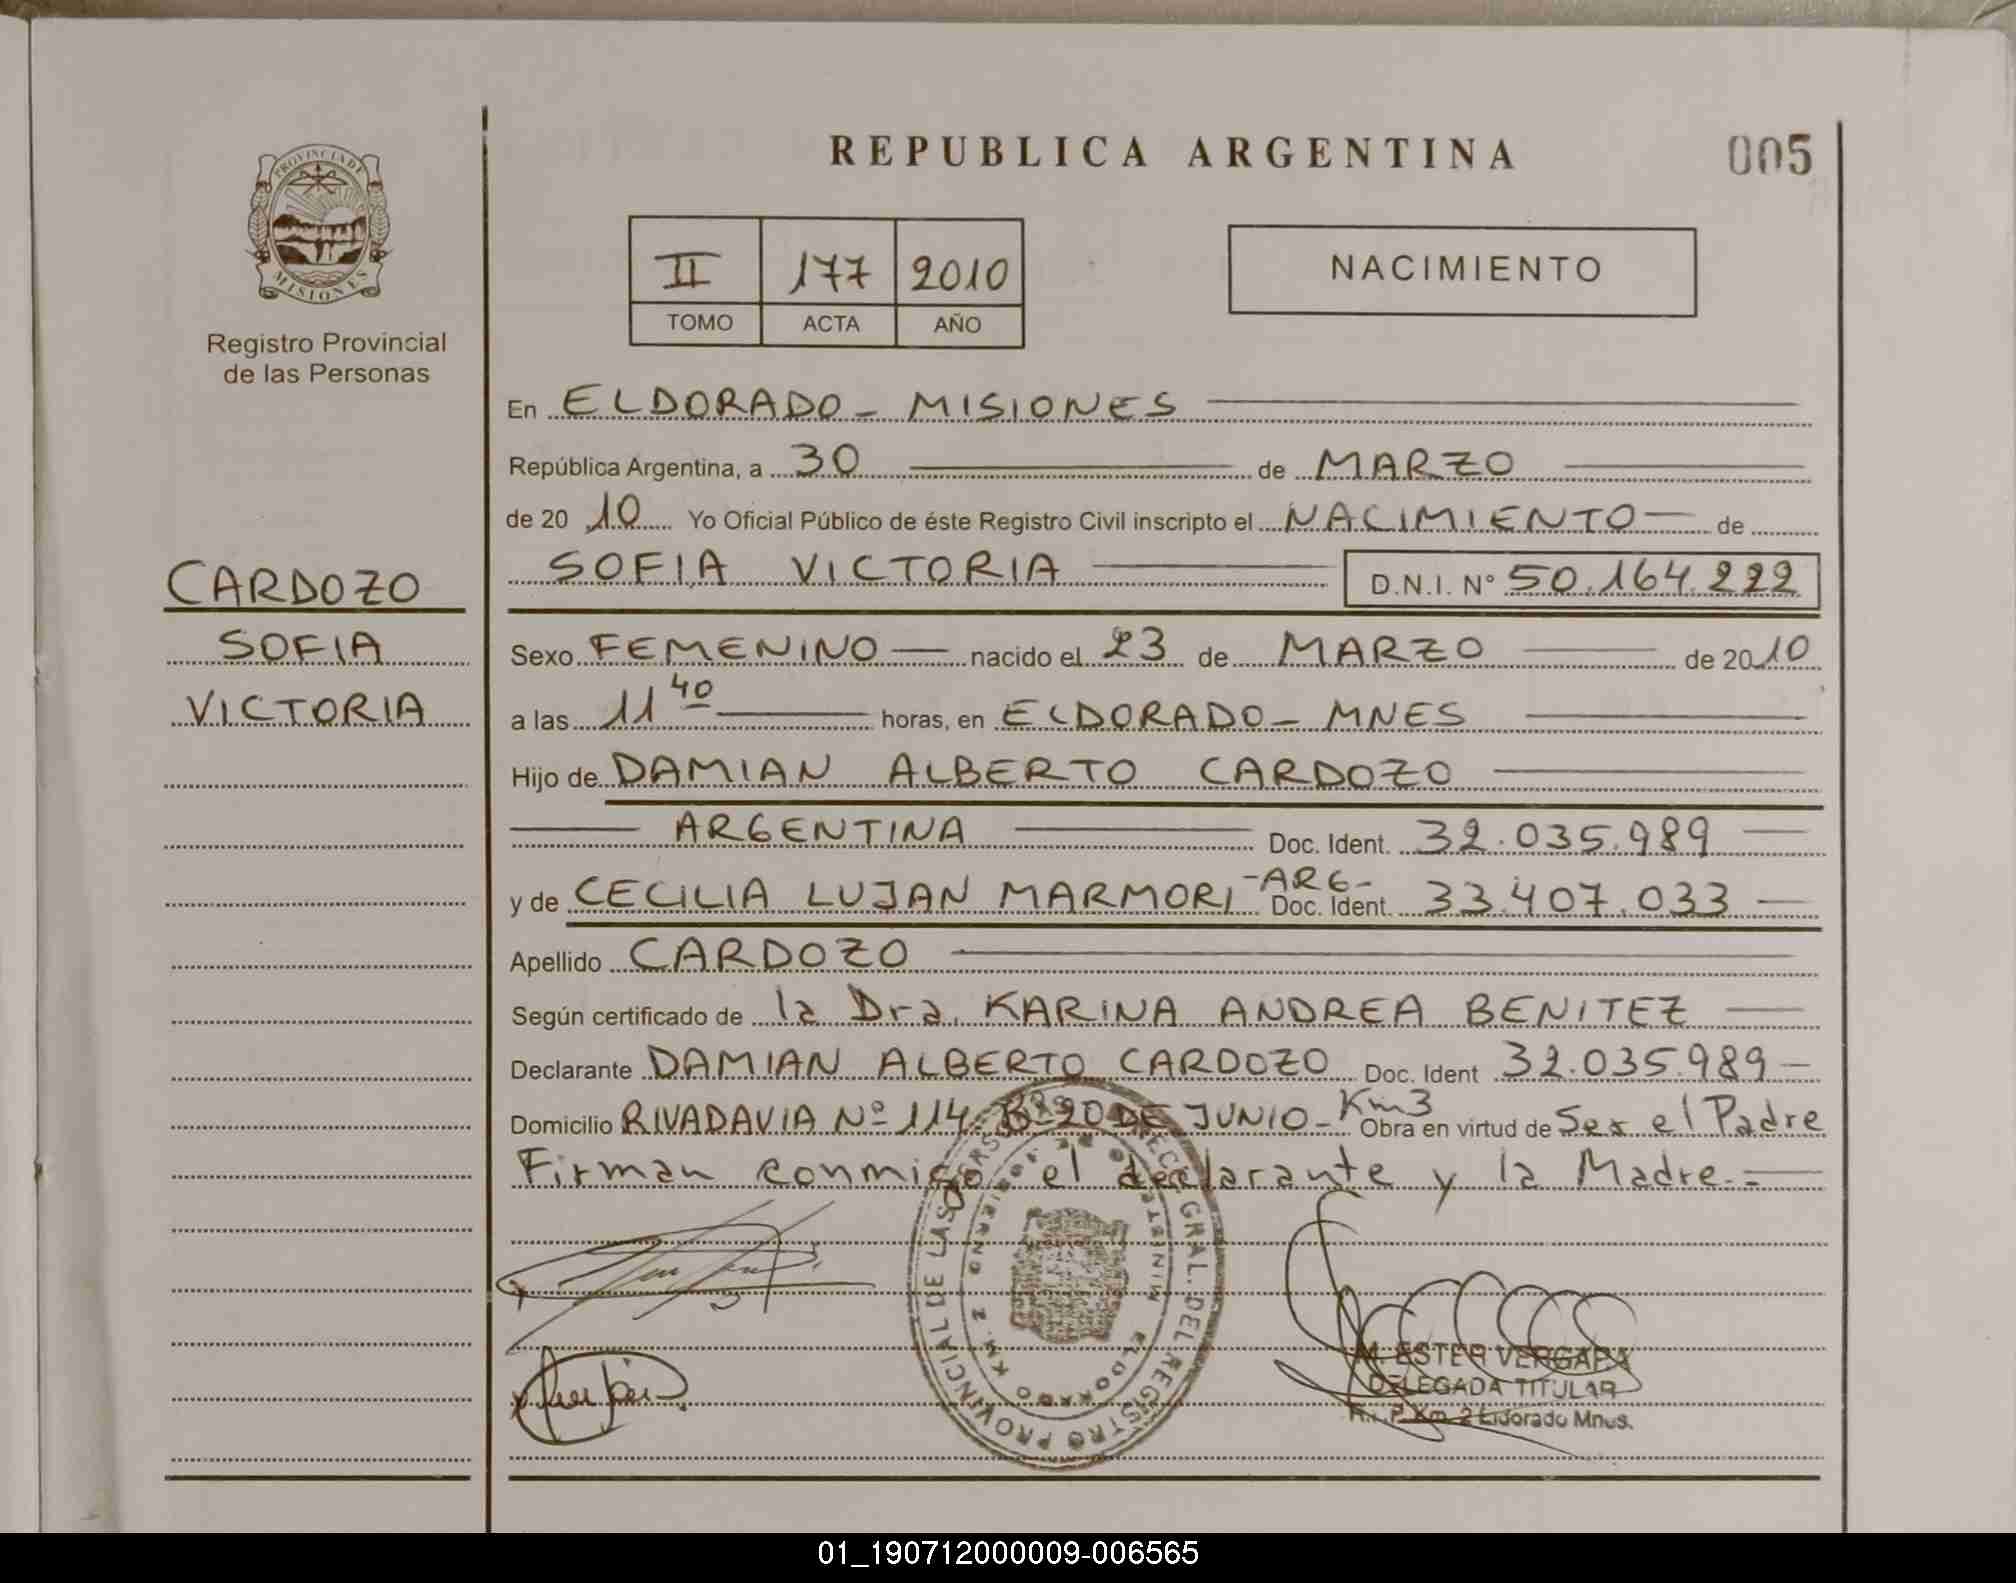 REPUBLICA ARGENTINA
005
PROVINCIA DE
MISIONES
Registro Provincial
de las Personas
II 177 2010
TOMO ACTA AÑO
NACIMIENTO
En ELDORADO - MISIONES
República Argentina, a 30 de MARZO
de 20 10 Yo Oficial Público de éste Registro Civil inscripto el NACIMIENTO de
SOFIA VICTORIA D.N.I. N° 50.164.222
CARDOZO
SOFIA
VICTORIA
Sexo FEMENINO nacido el 23 de MARZO de 2010
a las 11 40 horas, en ELDORADO - MNES
Hijo de DAMIAN ALBERTO CARDOZO
ARGENTINA Doc. Ident. 32.035.989
y de CECILIA LUJAN MARMORI -ARG- Doc. Ident. 33.407.033
Apellido CARDOZO
Según certificado de la Dra. KARINA ANDREA BENITEZ
Declarante DAMIAN ALBERTO CARDOZO Doc. Ident 32.035.989
Domicilio RIVADAVIA Nº 114 Bº 20 DE JUNIO - Km3 Obra en virtud de Ser el Padre
Firman conmigo el declarante y la Madre.=
GRAL. DEL REGISTRO PROVINCIAL DE LAS
ELDORADO KM. 2
M. ESTER VERGARA
DELEGADA TITULAR
Km 2 Eldorado Mnes.
01_190712000009-006565